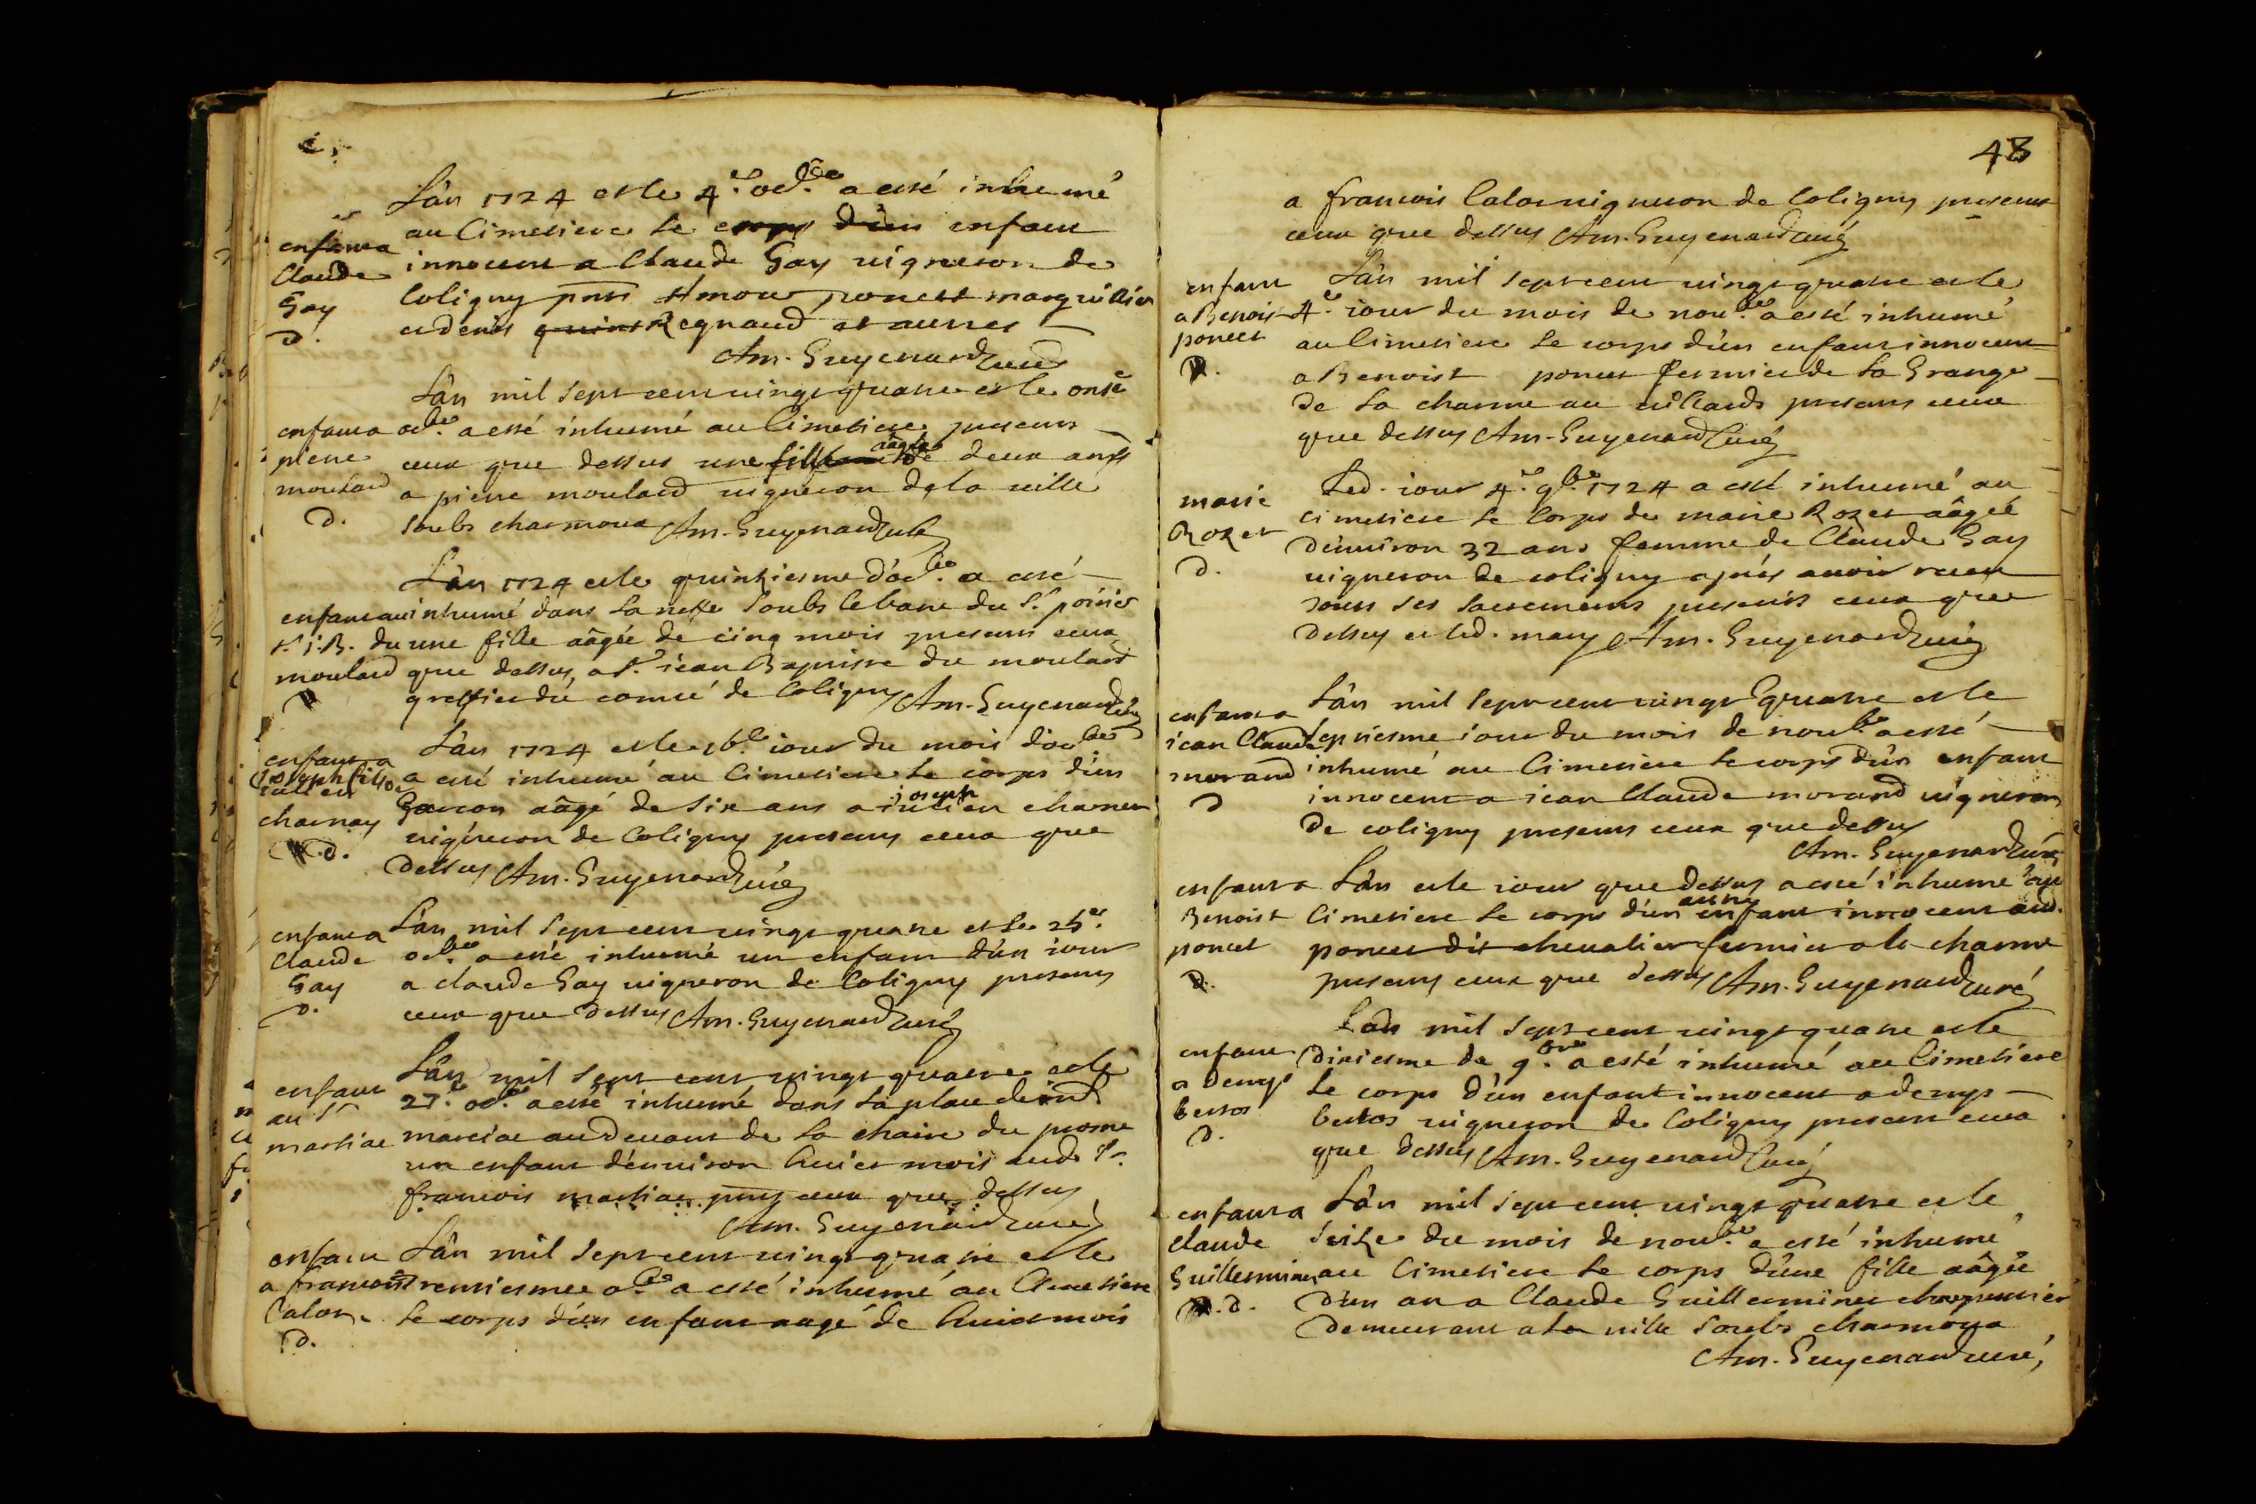 L'an 1724 et le 4.e oct.bre a esté inhumé
au Cimetiere le corps d'un enfant
innocent a Claude Gay vigneron de
Coligny pnts Amour poncet marguillier
et denis Regnaud et autres
Am. Guyenard curé
enfant a
Claude
Gay
d.
L'an mil sept cent vingt quatre et le onze
oct.bre a esté inhumé au Cimetiere presents
ceux que dessus une fille aagée de deux ans
a pierre moulard vigneron de la ville
soubs charmoux Am. Guyenard curé
enfant a
pierre
moulard
d.
L'an 1724 et le quinziesme d'oct.bre a esté
inhumé dans la neffe soubs le banc du Sr poirier
une fille aâgée de cinq mois presents ceux
que dessus, a Sr jean Baptiste du moulard
greffier du comté de Coligny Am. Guyenard curé
enfant au
Sr. j. B. du
moulard
L'an 1724 et le 16.e iour du mois d'oct.bre
a esté inhumé au Cimetiere le corps d'un
Garcon aâgé de six ans a joseph
vigneron de Coligny presents ceux que
dessus Am. Guyenard curé
enfant a
joseph fils de
julien
charnay
d.
L'an mil sept cent vingt quatre et le 25.e
oct.bre a esté inhumé un enfant d'un iour
a claude Gay vigneron de Coligny presents
ceux que dessus Am. Guyenard curé
enfant a
Claude
Gay
d.
L'an mil sept cent vingt quatre et le
27.e oct.bre a esté inhumé dans la place de
marciac au devant de la chaire du prosne
un enfant d'environ huict mois aud. Sr.
francois martiac pnts ceux que dessus
Am. Guyenard curé
enfant
au Sr
martiac
L'an mil sept cent vingt quatre et le
trentiesme o.bre a esté inhumé au Cimetiere
le corps d'un enfant aagé de huict mois
enfant
a francois
Calon
d.
48
a francois Calon vigneron de Coligny presents
ceux que dessus Am. Guyenard curé
L'an mil sept cent vingt quatre et le
4.e iour du mois de nou.bre a esté inhumé
au Cimetiere le corps d'un enfant innocent
a Benoist poncet fermier de la Grange
de la charme au presents ceux
que dessus Am. Guyenard curé
enfant
a Benoist
poncet
Led. iour 4.e 9.bre 1724 a esté inhumé au
cimetiere le Corps de marie Rozet aâgée
d'environ 32 ans femme de Claude Gay
vigneron de coligny aprés avoir receu
tous ses sacrements presents ceux que
dessus et led. mary Am. Guyenard curé
marie
Rozet
d.
L'an mil sept cent vingt quatre et le
septiesme iour du mois de nou.bre a esté
inhumé au Cimetiere le corps d'un enfant
innocent a jean Claude morand vigneron
de coligny presents ceux que dessus
Am. Guyenard curé
enfant a
jean Claude
morand
d
L'an et le iour que dessus a esté inhumé au
Cimetiere le corps d'un autre enfant innocent aud.
poncet dit chevalier fermier a la charme
presents ceux que dessus Am. Guyenard curé
enfant a
Benoist
poncet
d.
L'an mil sept cent vingt quatre et le
dixiesme de 9.bre a esté inhumé au Cimetiere
le corps d'un enfant innocent a denys
bertos vigneron de Coligny presents ceux
que dessus Am. Guyenard curé
enfant
a denys
bertos
d.
L'an mil sept cent vingt quatre et le
seize du mois de nou.bre a esté inhumé
au Cimetiere le corps d'une fille aâgée
d'un an a Claude Guilleminet charpentier
demeurant a la ville soubs charmoux
Am. Guyenard curé,
enfant a
Claude
Guilleminet
d.